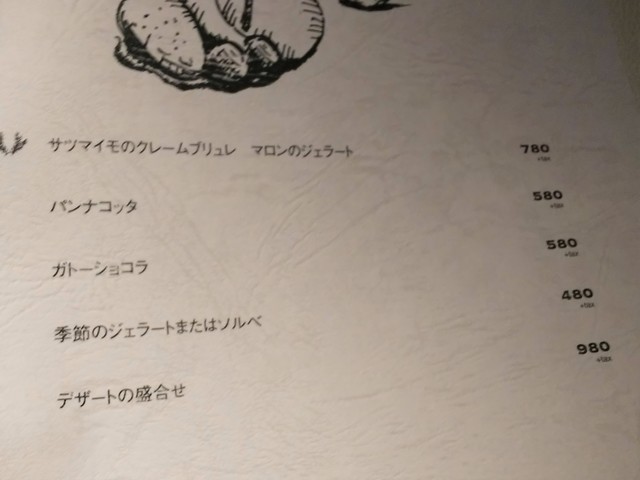 サツマイモのクレームブリュレ　マロンのジェラート 780
+tax
パンナコッタ 580
+tax
ガトーショコラ 580
+tax
季節のジェラートまたはソルベ 480
+tax
デザートの盛合せ 980
+tax